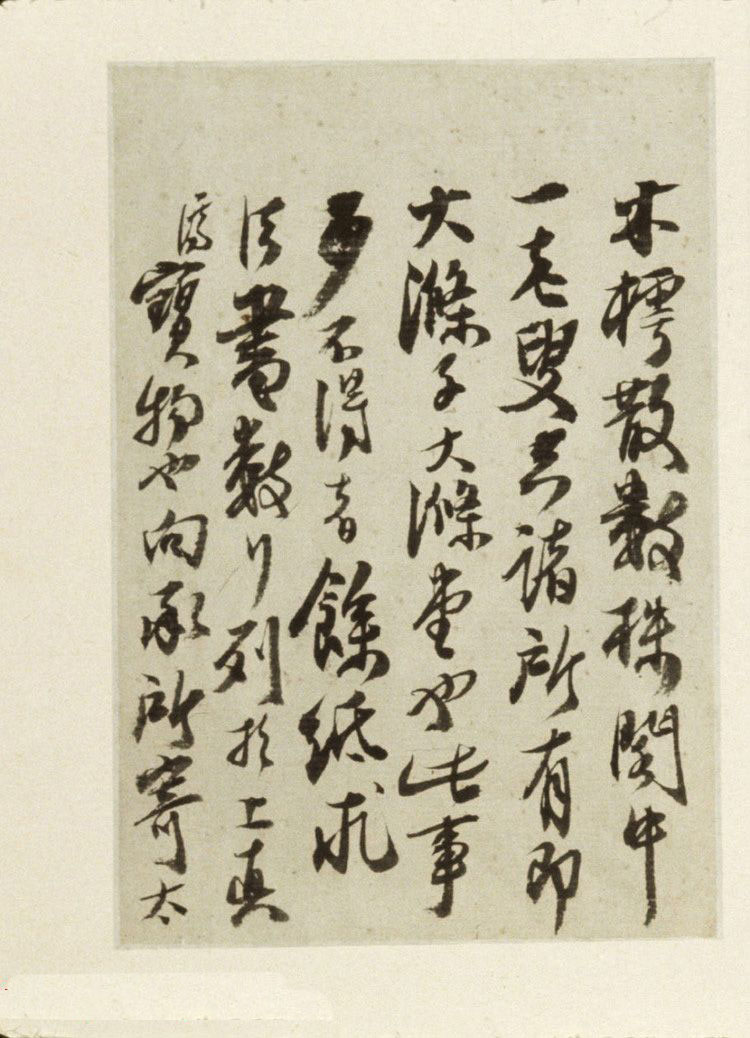 木樗散數株閣中
一老叟空諸所有即
大滌子大滌堂也此事
少不得者餘紙求
法書數行列於上真
濟寶物也向承所寄太